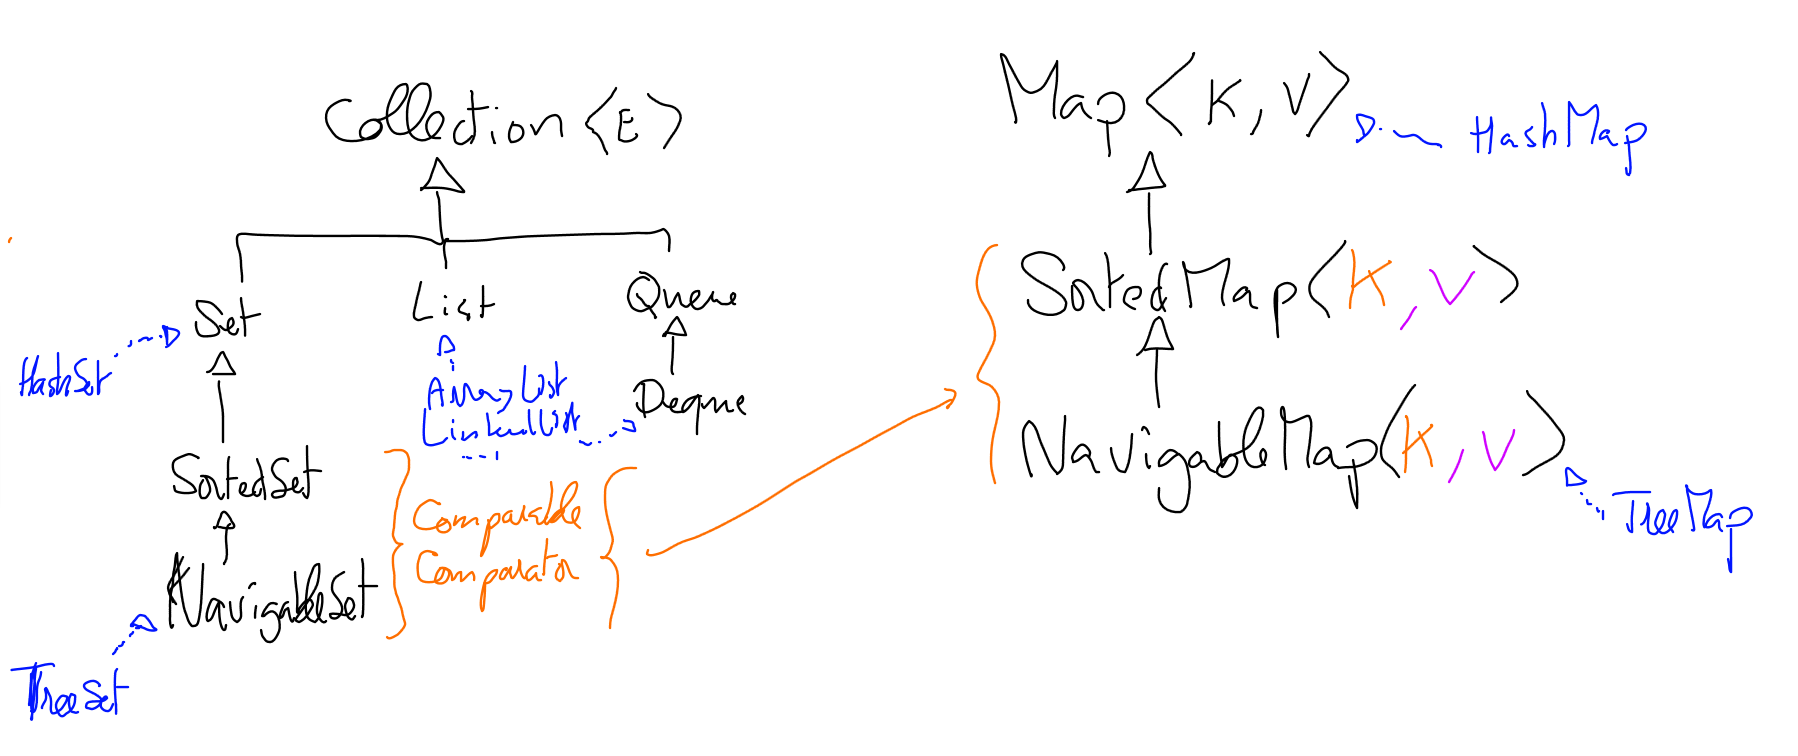 Collection <E>
Set
List
Queue
HashSet
ArrayList
LinkedList
Deque
SortedSet
NavigableSet
TreeSet
Comparable
Comparator
Map <K, V>
HashMap
SortedMap <K, V>
NavigableMap <K, V>
TreeMap